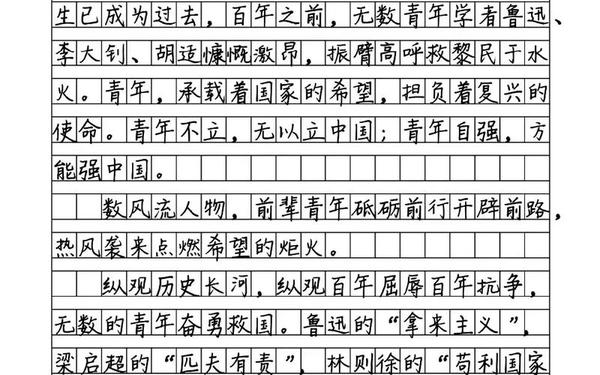 生已成为过去，百年之前，无数青年学者鲁迅、
李大钊、胡适慷慨激昂，振臂高呼救黎民于水
火。青年，承载着国家的希望，担负着复兴的
使命。青年不立，无以立中国；青年自强，方
能强中国。
数风流人物，前辈青年砥砺前行开辟前路，
热风袭来点燃希望的炬火。
纵观历史长河，纵观百年屈辱百年抗争，
无数的青年奋勇救国。鲁迅的“拿来主义”，
梁启超的“匹夫有责”，林则徐的“苟利国家